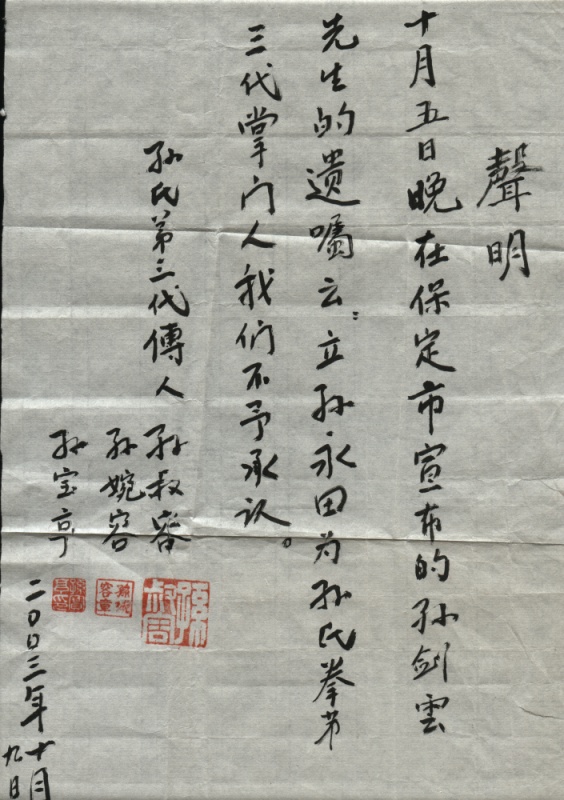 聲明
十月五日晚在保定市宣布的孙剑雲
先生的遗嘱云:立孙永田为孙氏拳第
三代掌门人我们不予承认。
孙氏第三代傳人 孙叔容
孙婉容
孙宝亨
二00三年十月
九日